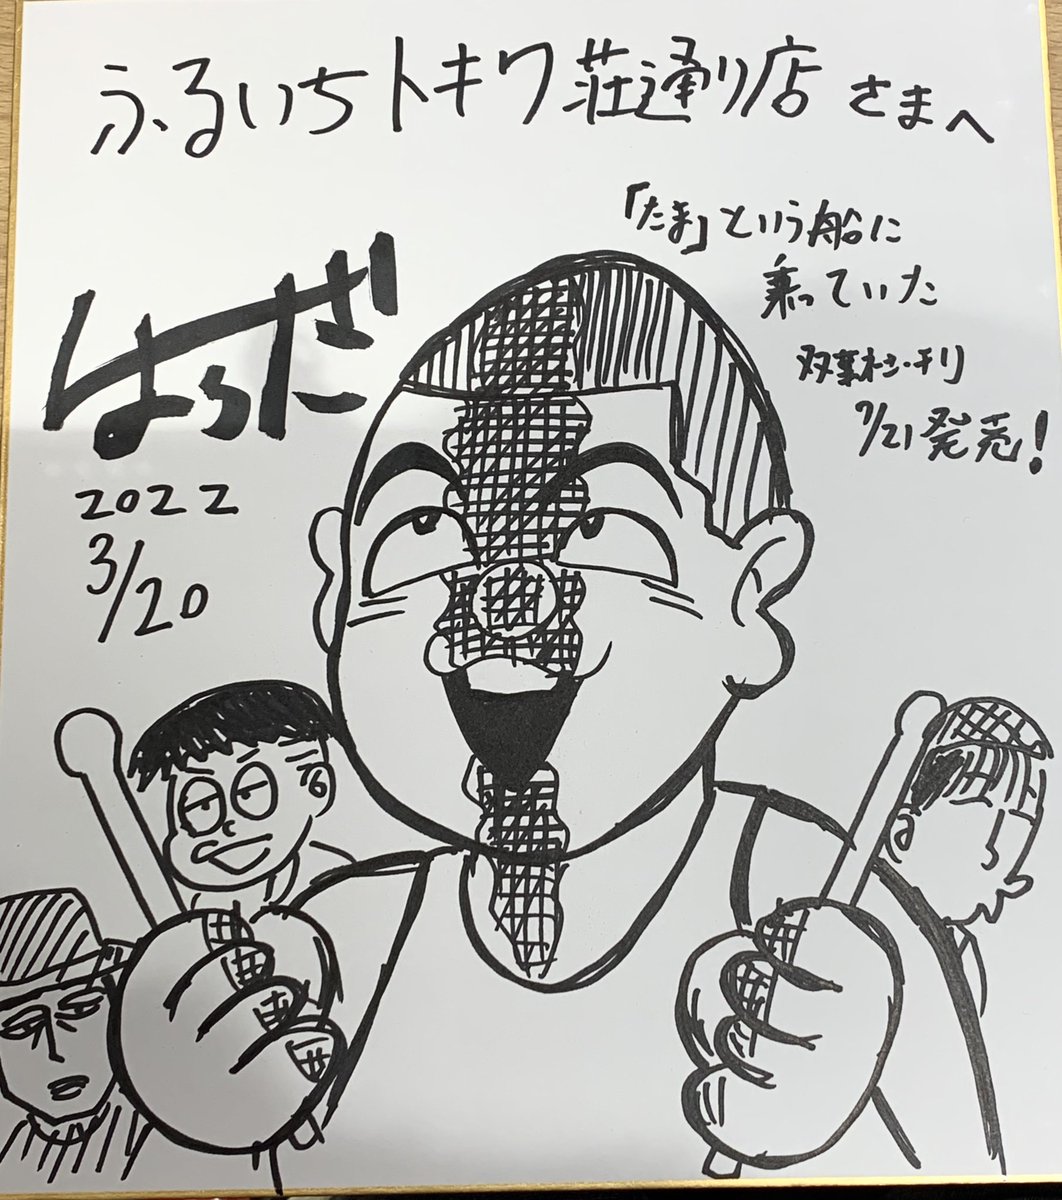 ふるいちトキワ荘通り店さまへ
「たま」という船に
乗っていた
双葉社・刊
7/21発売!
はらだ
2022
3/20